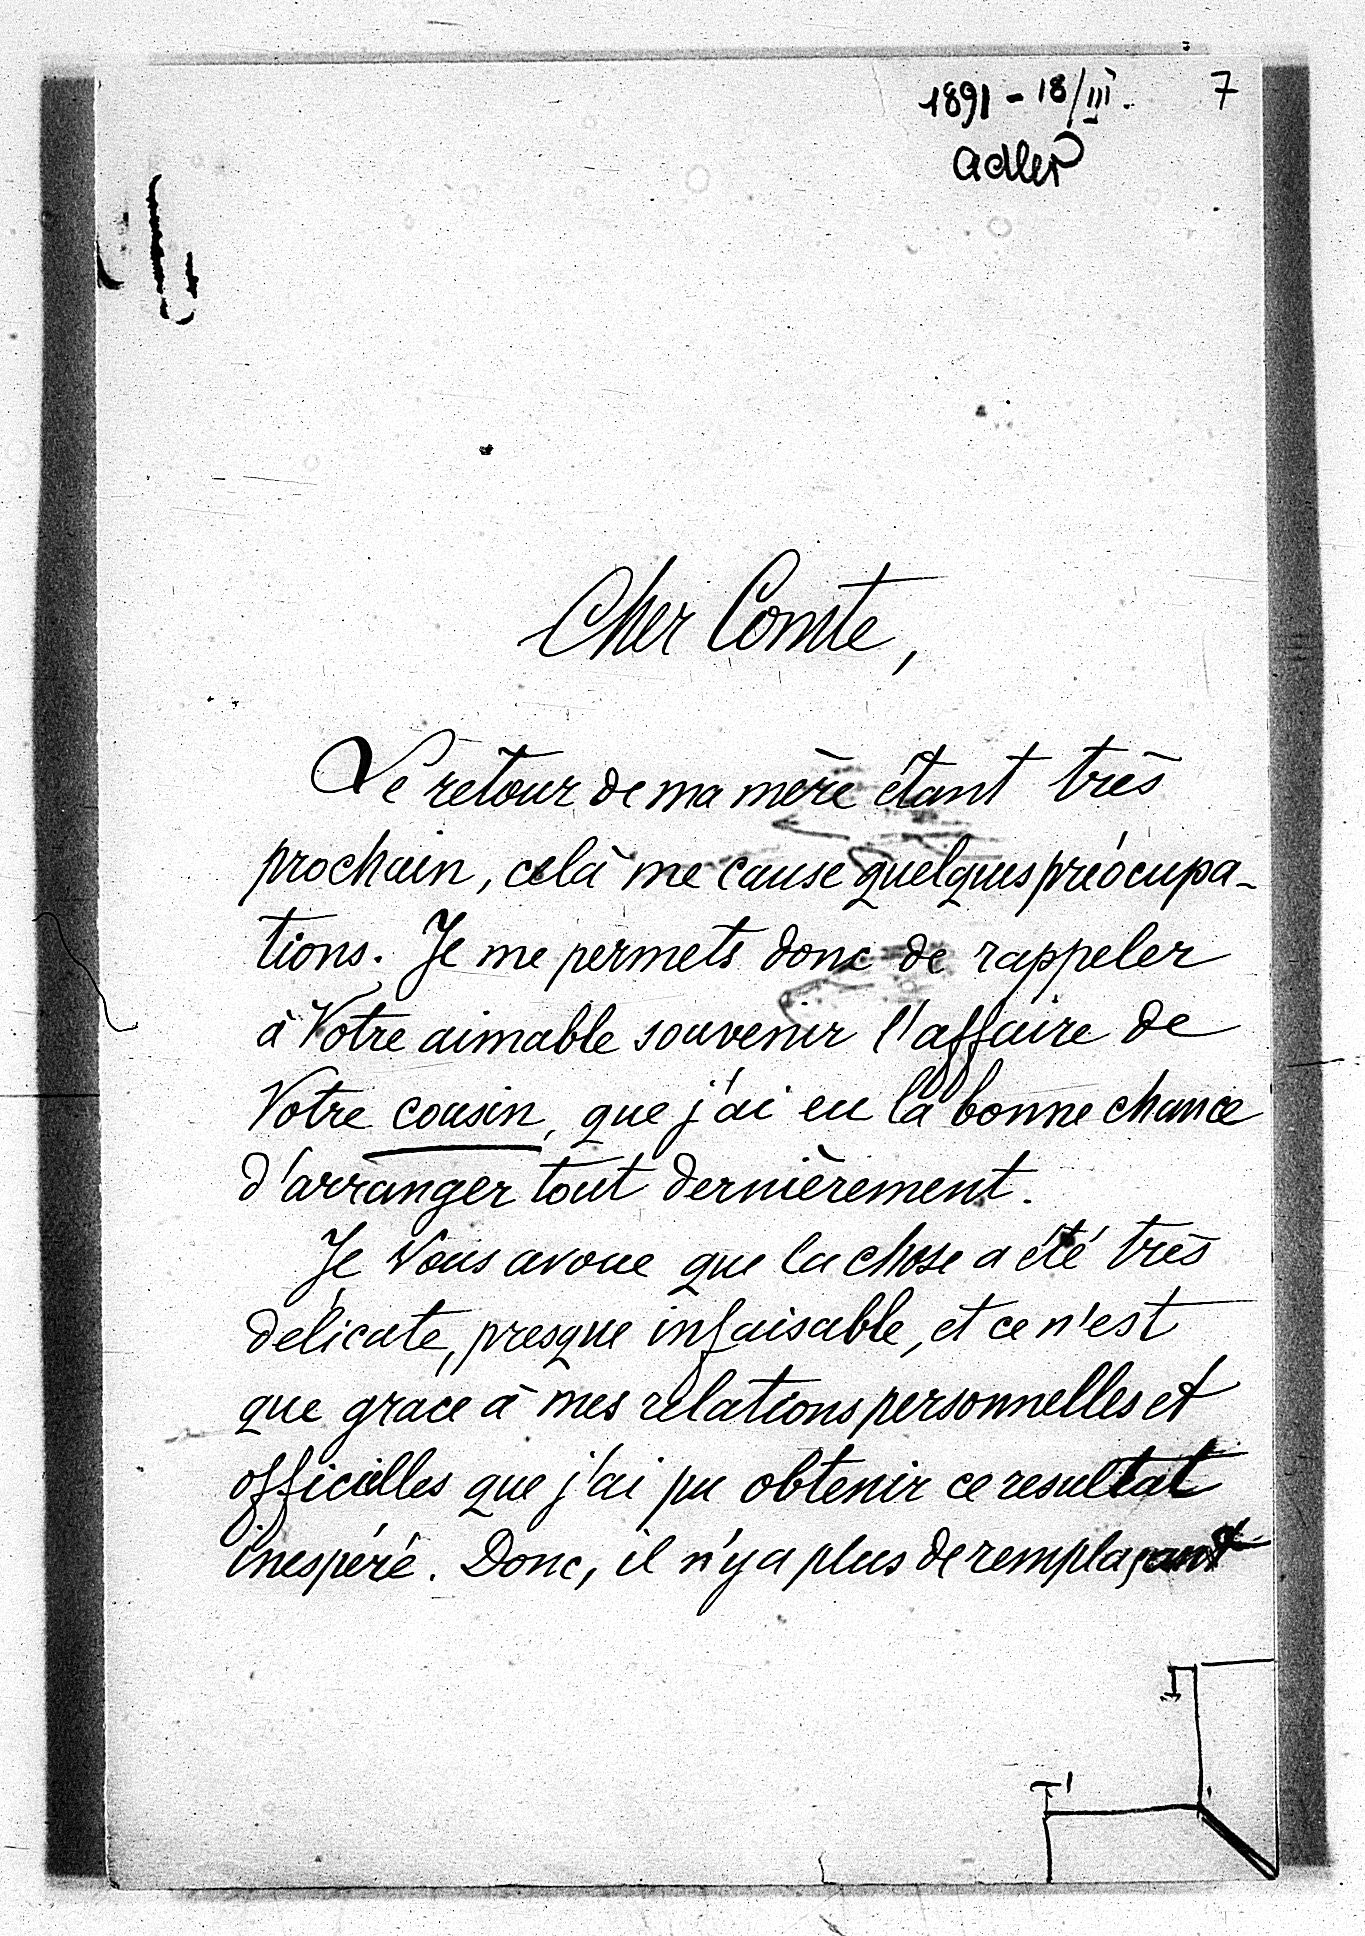 1891 - 18/III. 7
Adler
Cher Comte,
Le retour de ma mère étant très
prochain, celà me cause quelques préocupa-
tions. Je me permets donc de rappeler
à Votre aimable souvenir l'affaire de
Votre cousin, que j'ai eu la bonne chance
d'arranger tout dernièrement.
Je Vous avoue que la chose a été très
délicate, presque infaisable, et ce n'est
que grace à mes relations personnelles et
officielles que j'ai pu obtenir ce resultat
inespéré. Donc, il n'y a plus de remplaçant